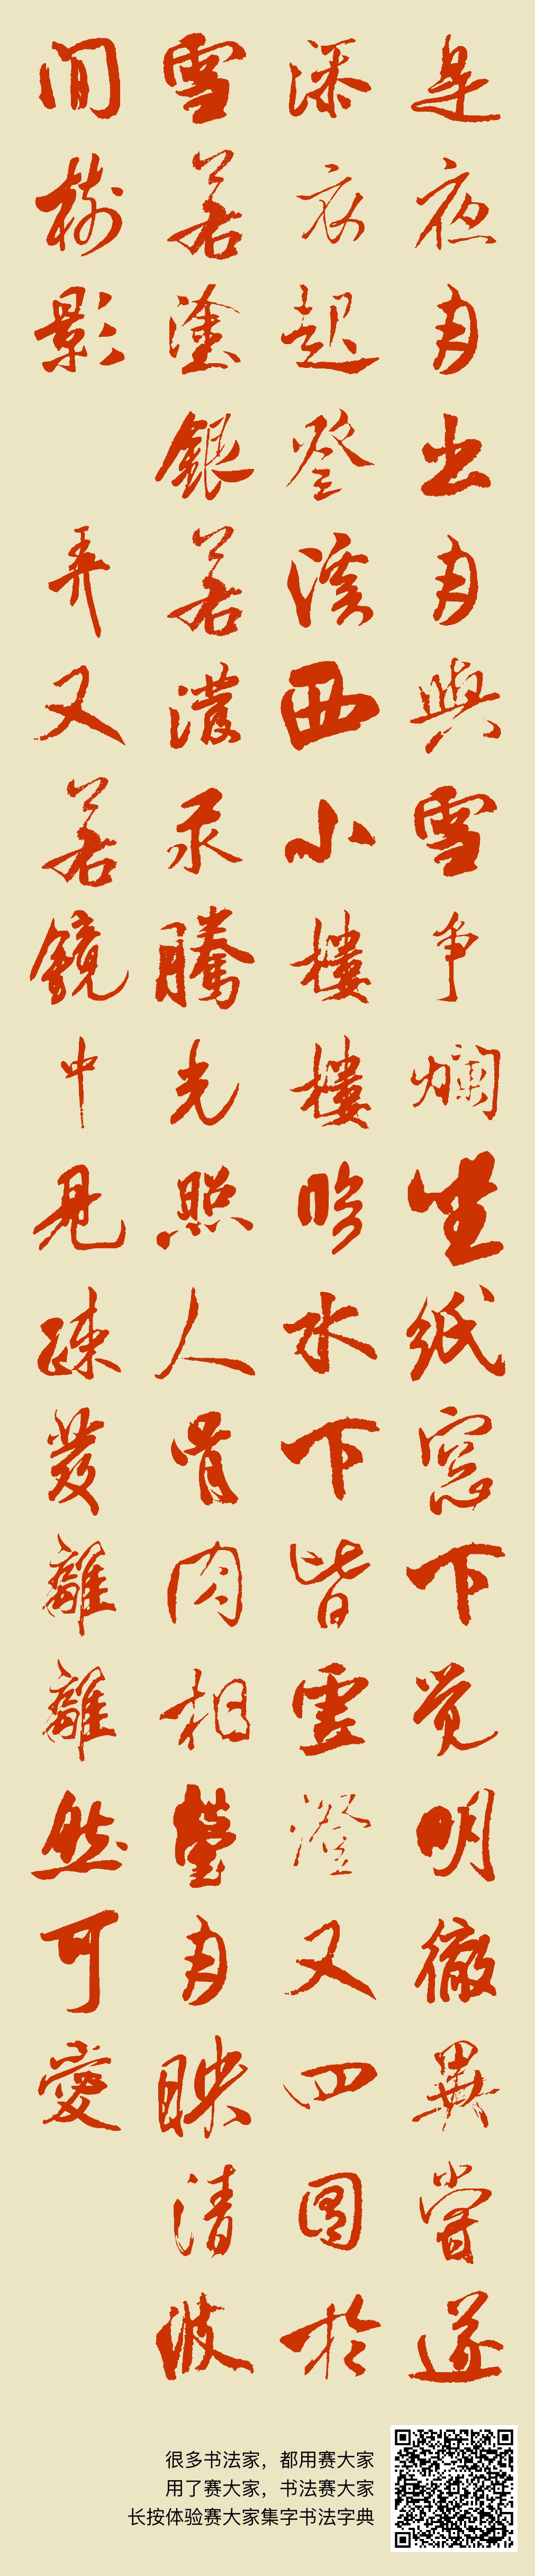 是夜月出月與雪爭爛坐紙窓下觉明徹異嘗遂
添衣起登溪西小樓樓臨水下皆虚澄又四圍於
雪若塗銀若潑汞騰光照人骨肉相瑩月映清波
間樹影 弄又若鏡中見疎髮離離然可愛
很多书法家，都用赛大家
用了赛大家，书法赛大家
长按体验赛大家集字书法字典